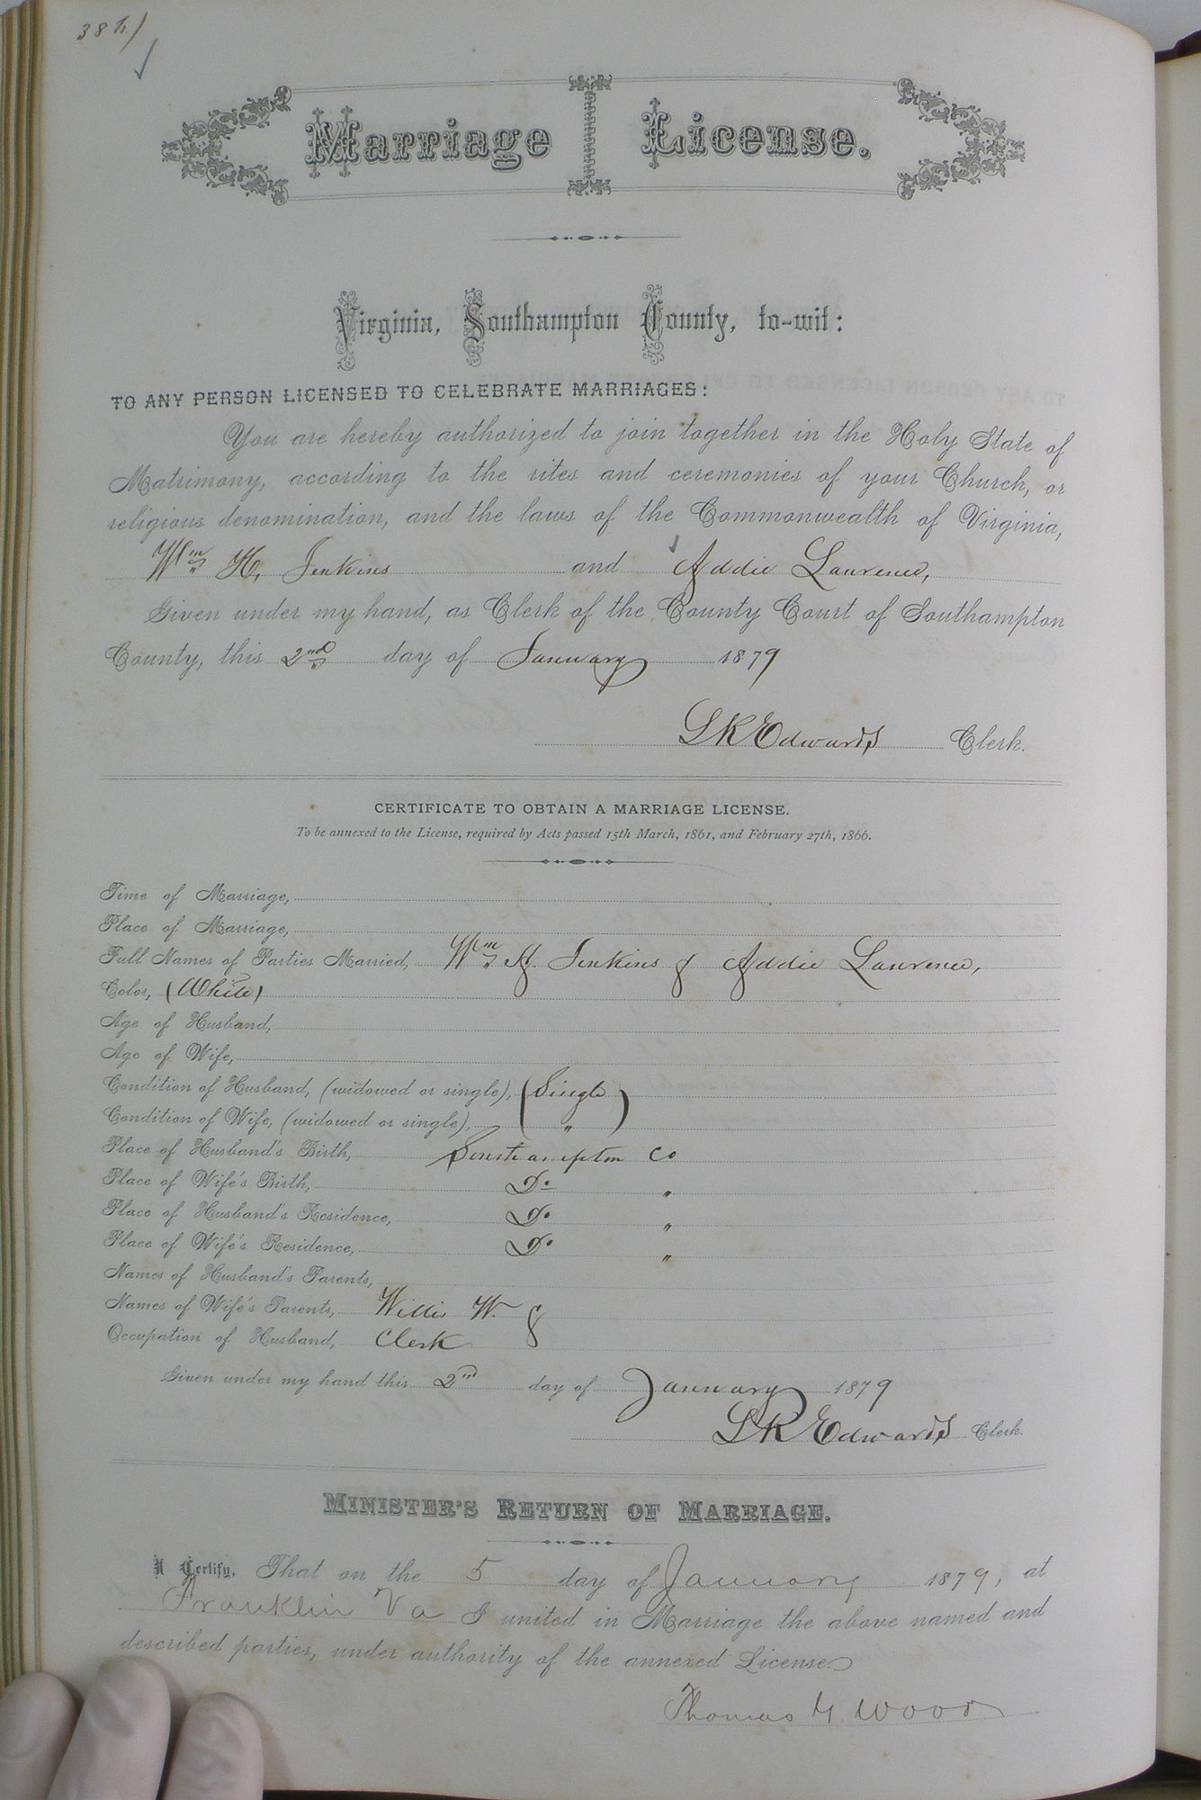 Marriage License.
Virginia, Southampton County, to-wit:
TO ANY PERSON LICENSED TO CELEBRATE MARRIAGES:
You are hereby authorized to join together in the Holy State of
Matrimony, according to the rites and ceremonies of your Church, or
religious denomination, and the laws of the Commonwealth of Virginia,
Wm H. Jenkins and Addie Laurence,
Given under my hand, as Clerk of the County Court of Southampton
County, this 2nd day of January 1879
L R Edwards Clerk.
CERTIFICATE TO OBTAIN A MARRIAGE LICENSE.
To be annexed to the License, required by Acts passed 15th March, 1861, and February 27th, 1866.
Time of Marriage,
Place of Marriage,
Full Names of Parties Married, Wm H. Jenkins & Addie Laurence,
Color, (White)
Age of Husband,
Age of Wife,
Condition of Husband, (widowed or single), (Single)
Condition of Wife, (widowed or single), "
Place of Husband's Birth, Southampton Co
Place of Wife's Birth, Do "
Place of Husband's Residence, Do "
Place of Wife's Residence, Do "
Names of Husband's Parents,
Names of Wife's Parents, Willis W. &
Occupation of Husband, Clerk
Given under my hand this 2nd day of January 1879
L R Edwards Clerk.
MINISTER'S RETURN OF MARRIAGE.
I Certify, That on the 5 day of January 1879, at
Franklin Va I united in Marriage the above named and
described parties, under authority of the annexed License.
Thomas G. Wood